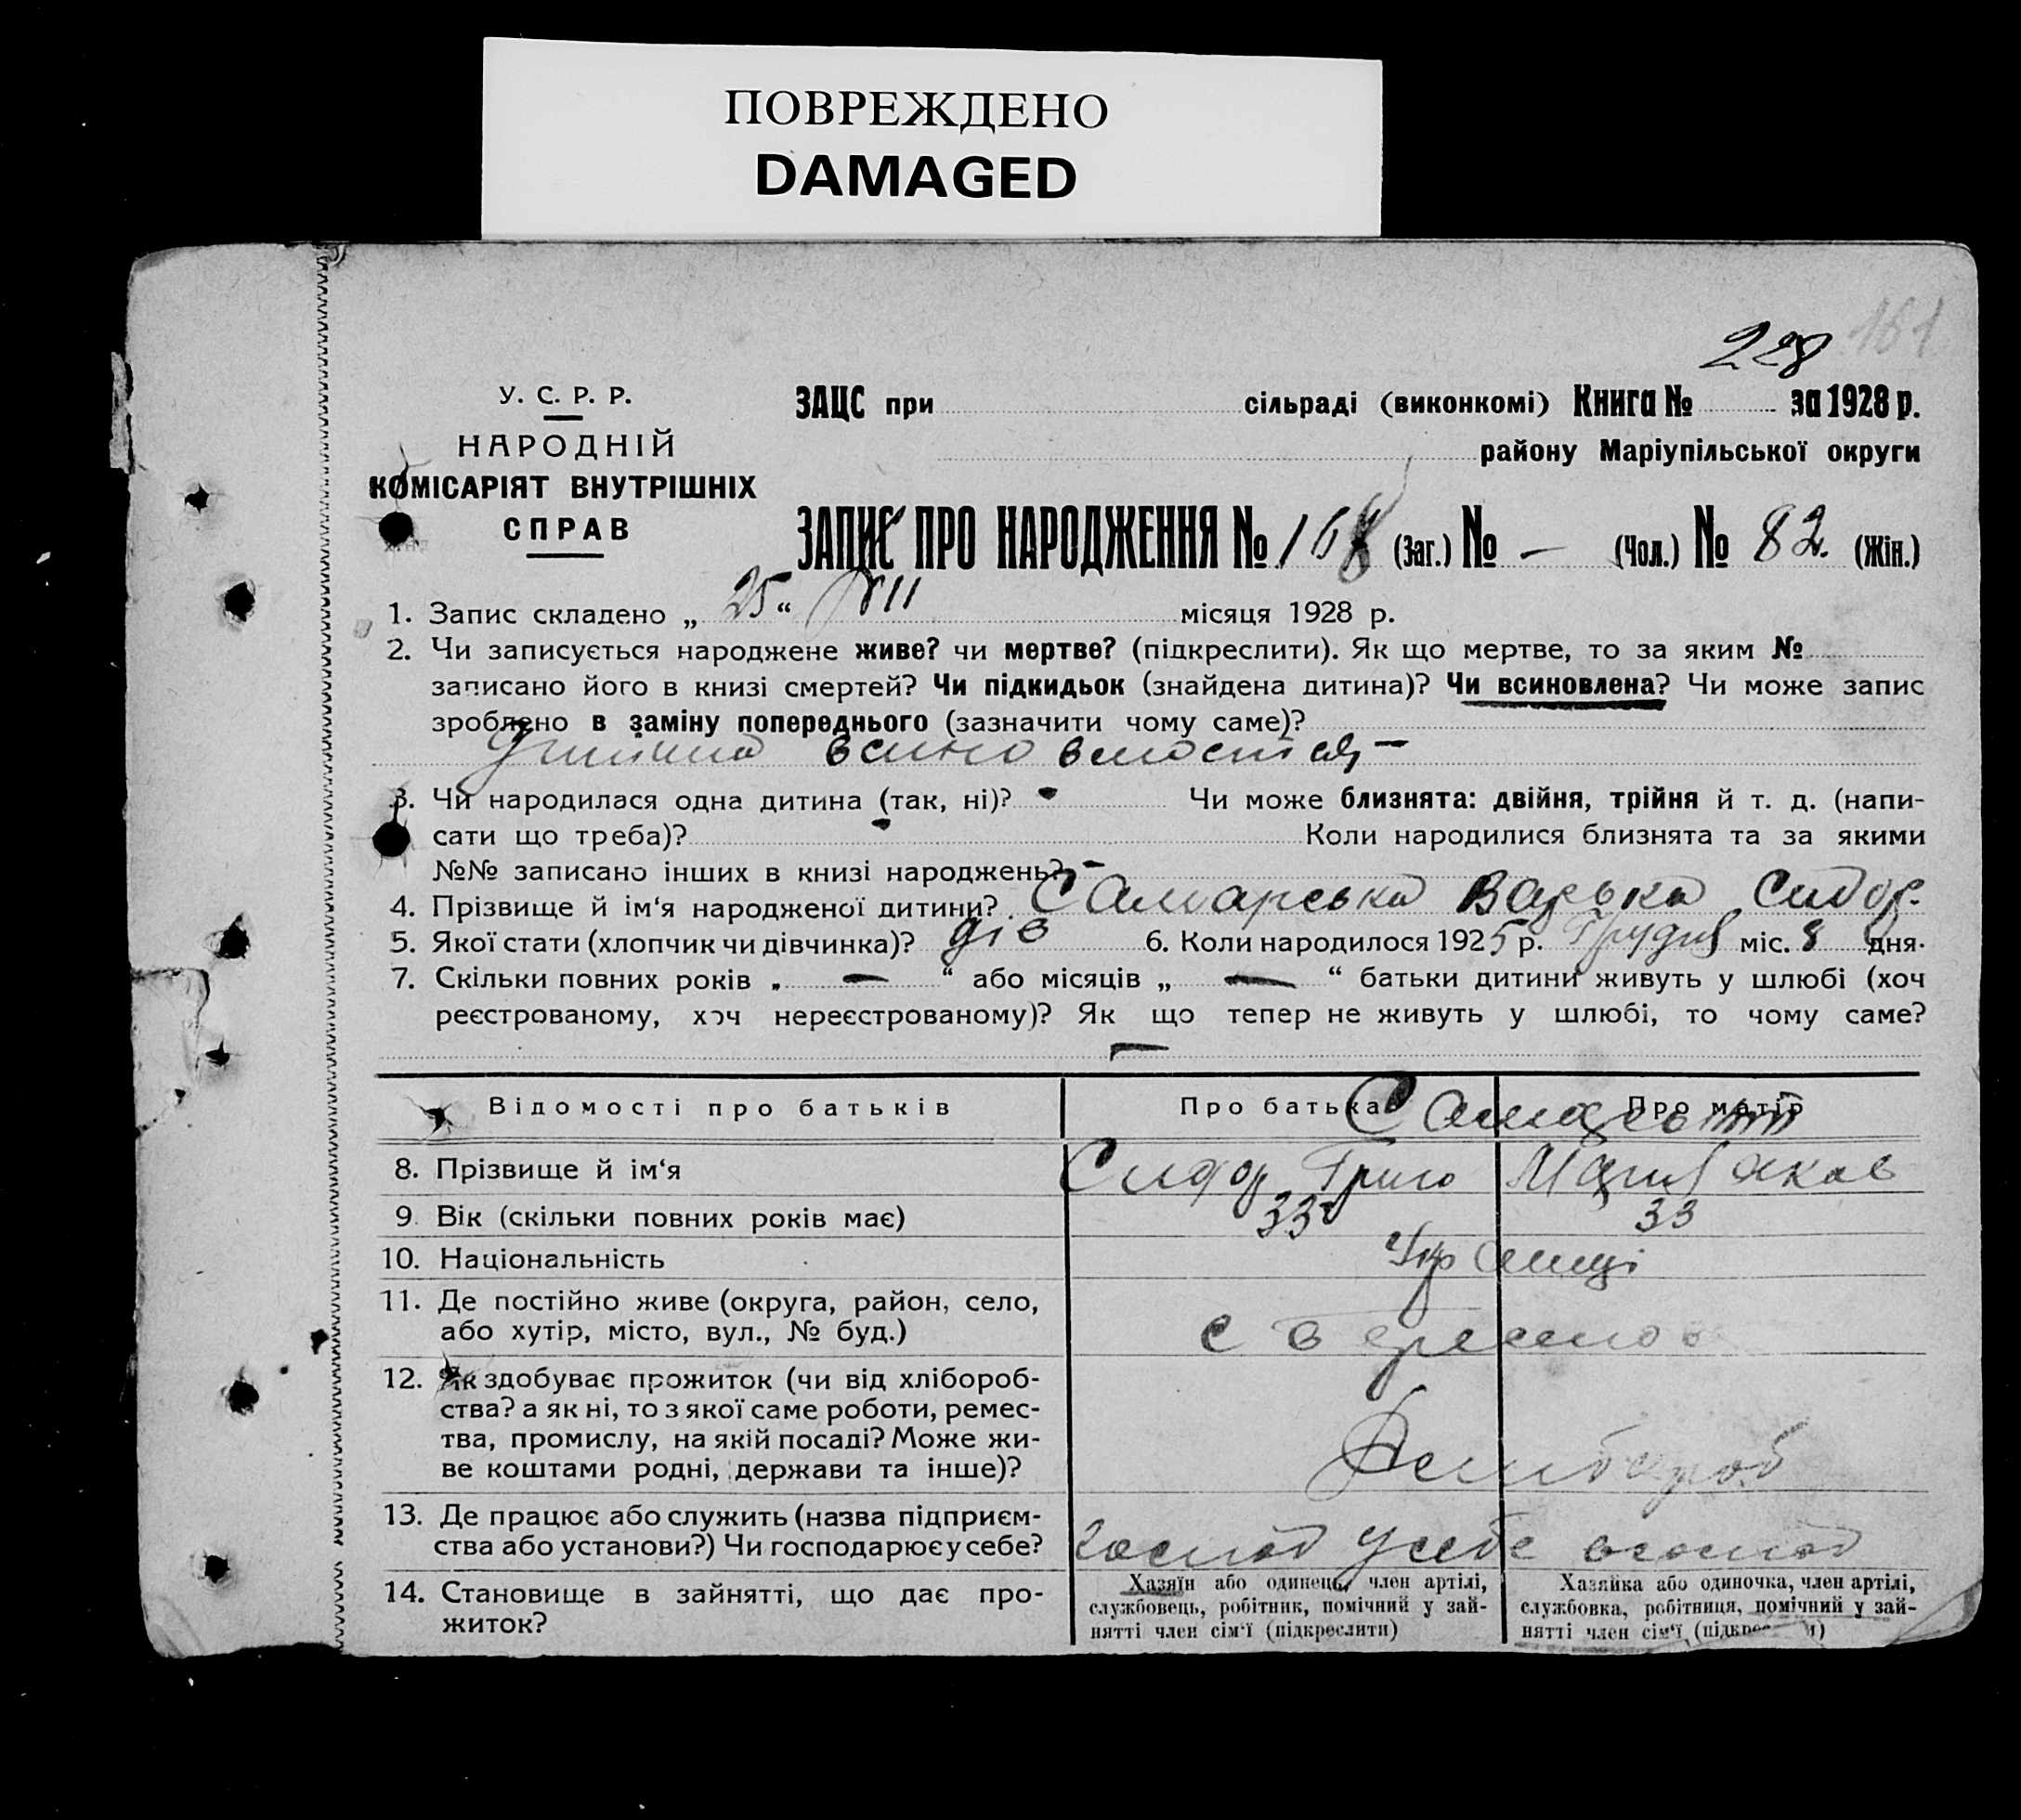 ПОВРЕЖДЕНО
DAMAGED
161
228
У. С. Р. Р.
НАРОДНІЙ
КОМІСАРІЯТ ВНУТРІШНІХ
СПРАВ
ЗАЦС при сільраді (виконкомі) Книга № за 1928 р.
району Маріупільської округи
ЗАПИС ПРО НАРОДЖЕННЯ № 168 (Заг.) № — (Чол.) № 82. (Жін.)
1. Запис складено „ 25 “ VII місяця 1928 р.
2. Чи записується народжене живе? чи мертве? (підкреслити). Як що мертве, то за яким №
записано його в книзі смертей? Чи підкидьок (знайдена дитина)? Чи всиновлена? Чи може запис
зроблено в заміну попереднього (зазначити чому саме)?
дитина
3. Чи народилася одна дитина (так, ні)? Чи може близнята: двійня, трійня й т. д. (напи-
сати що треба)? Коли народилися близнята та за якими
№№ записано інших в книзі народжень? —
4. Прізвище й ім‘я народженої дитини? Самарська Варька Сидор.
5. Якої стати (хлопчик чи дівчинка)? дів 6. Коли народилося 1925 р. Грудня міс. 8 дня.
7. Скільки повних років „ — “ або місяців „ — “ батьки дитини живуть у шлюбі (хоч
реєстрованому, хоч нереєстрованому)? Як що тепер не живуть у шлюбі, то чому саме?
—
Відомості про батьків Про батька Про матір
8. Прізвище й ім‘я Сидор Григо Мария Яков
9. Вік (скільки повних років має) 33 33
10. Національність Українці
11. Де постійно живе (округа, район, село,
або хутір, місто, вул., № буд.)
12. Як здобуває прожиток (чи від хлібороб-
ства? а як ні, то з якої саме роботи, ремес-
тва, промислу, на якій посаді? Може жи-
ве коштами родні, держави та інше)?
Хлібороб
13. Де працює або служить (назва підприєм-
ства або установи?) Чи господарює у себе?
господ у себе
14. Становище в зайнятті, що дає про-
житок?
Хазяїн або одинець, член артілі,
службовець, робітник, помічний у зай-
нятті член сім‘ї (підкреслити)
Хазяйка або одиночка, член артілі,
службовка, робітниця, помічний у зай-
нятті член сім‘ї